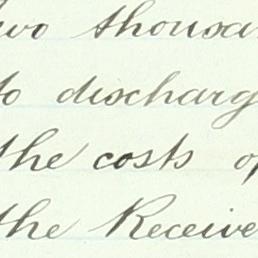 two thousan
to discharg
the costs of
the Receive